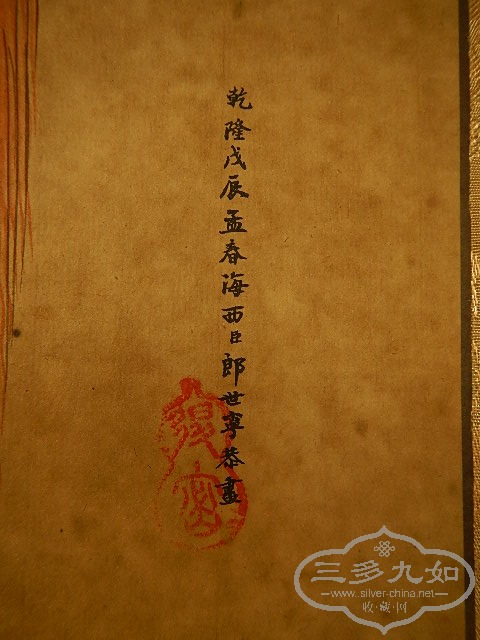 乾隆戊辰孟春海西臣郎世寧恭畫
三多九如
www.silver-china.net
收·藏·网